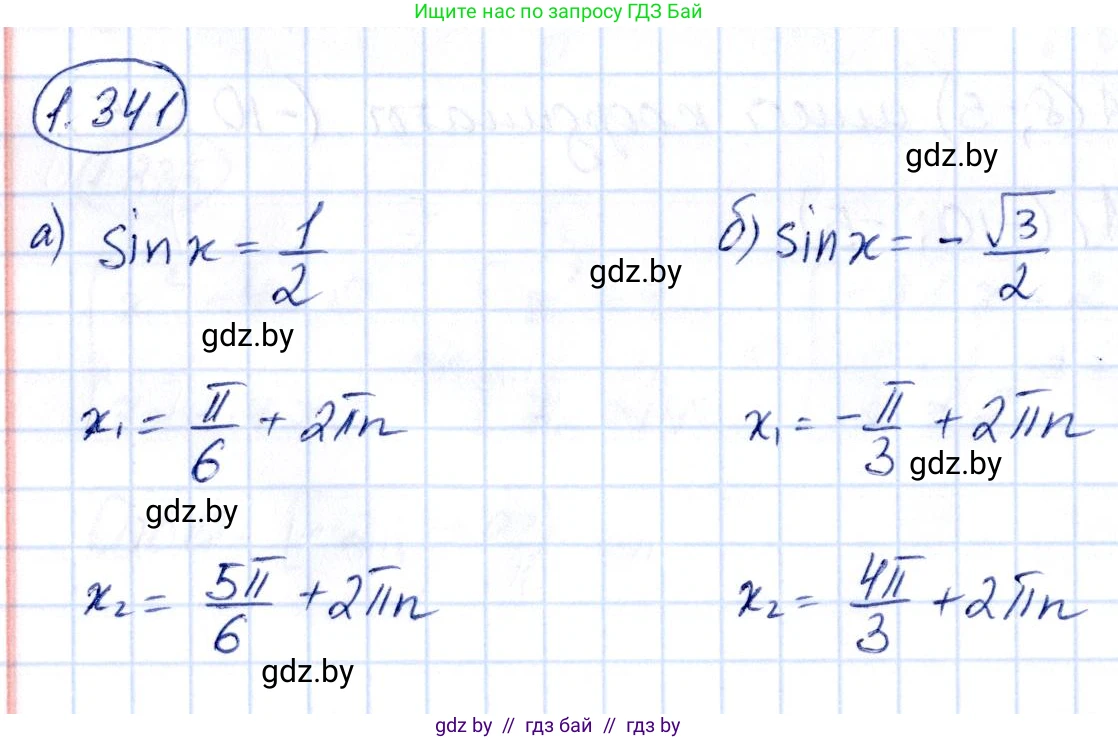 Ищите нас по запросу ГДЗ Бай
1.341
gdz.by
а) sin x = 1/2
б) sin x = - √3/2
gdz.by
gdz.by
x₁ = π/6 + 2πn
x₁ = -π/3 + 2πn
gdz.by
gdz.by
x₂ = 5π/6 + 2πn
x₂ = 4π/3 + 2πn
gdz.by
gdz.by // гдз бай // гдз by